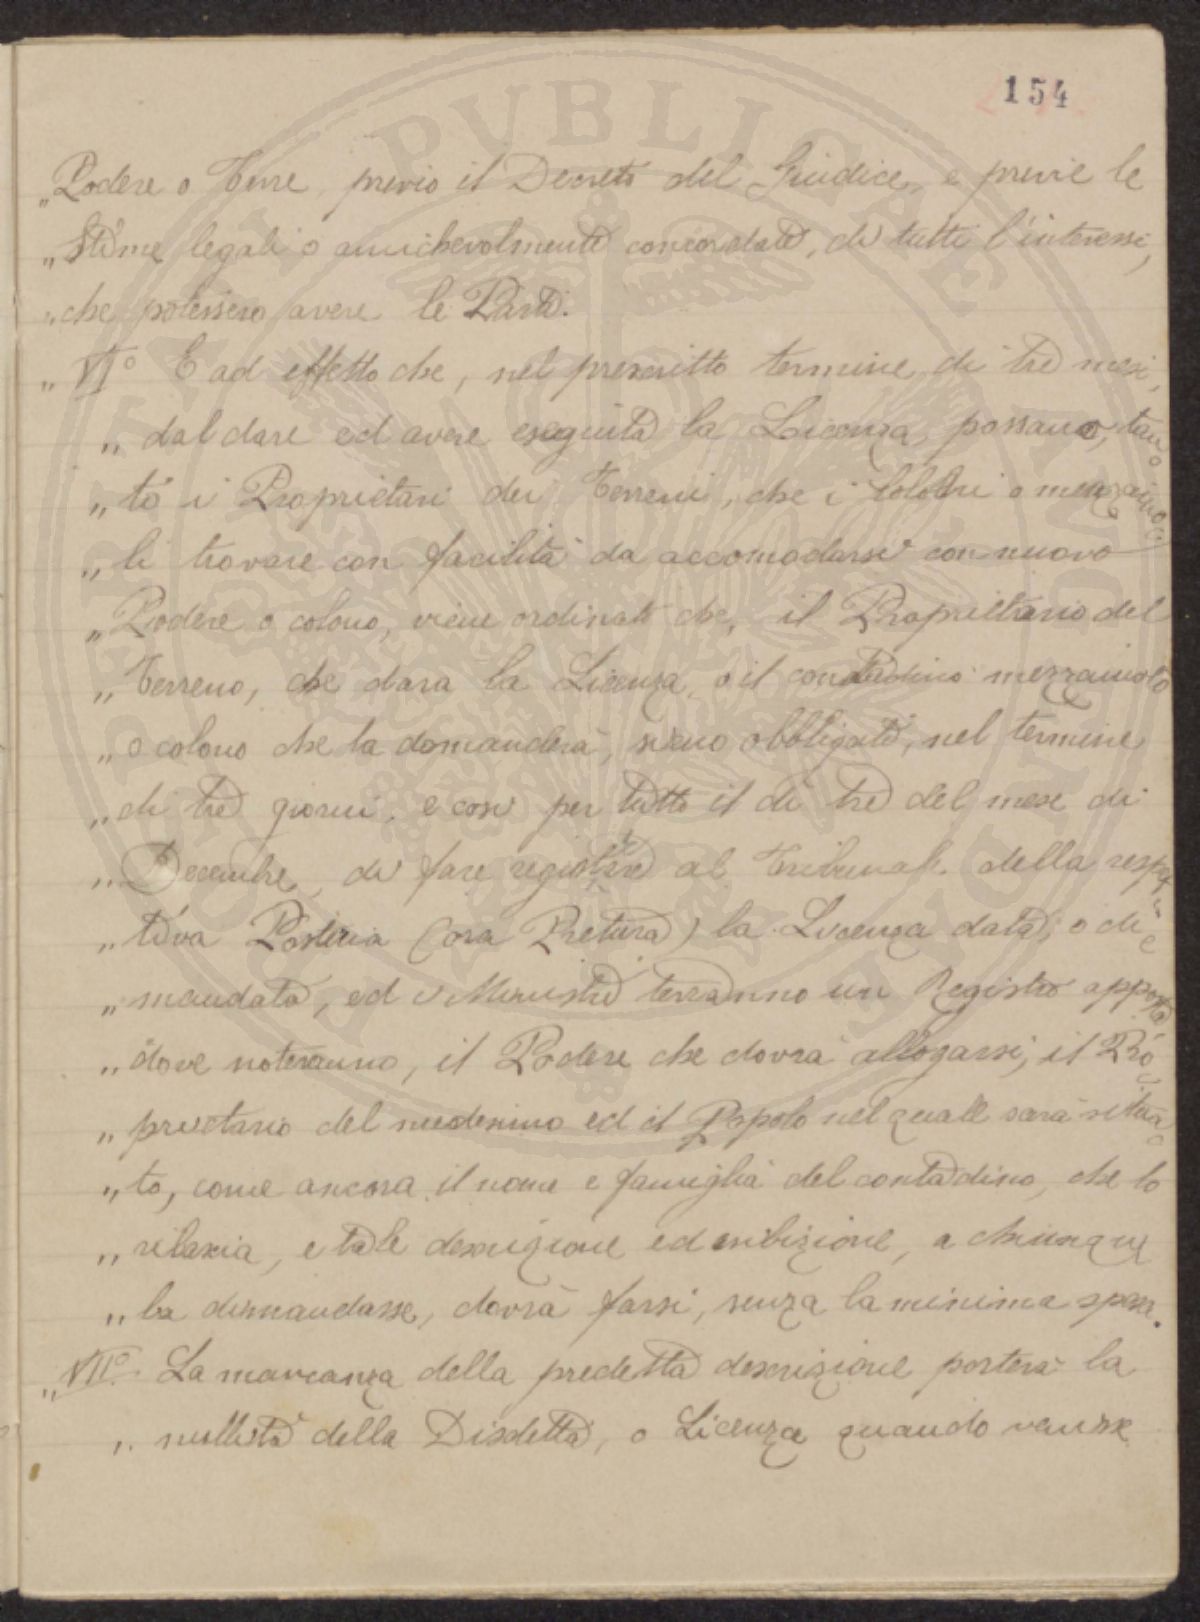 154
„Podere o Terre, previo il Decreto del Giudice, e previe le
„Stime legali o amichevolmente concordate, di tutti l'interessi,
„che potessero avere le Parti.
„VI° E ad effetto che, nel prescritto termine di tre mesi,
„dal dare ed avere eseguita la Licenza, possano, tan
„to i Proprietari dei Terreni, che i Coloni o mezzaiuo
„li trovare con facilità da accomodarsi con nuovo
„Podere o colono, viene ordinato che, il Proprietario del
„Terreno, che darà la Licenza, o il contadino mezzaiuolo
„o colono che la domanderà, sieno obbligati, nel termine
„di tre giorni, e così per tutto il dì tre del mese di
„Decembre, di fare registrare al Tribunale della respet
„tiva Potesteria (ora Pretura) la Licenza data, o di
„mandata, ed i Ministri terranno un Registro apposta
„dove noteranno, il Podere che dovrà allogarsi, il Pro
„prietario del medesimo ed il Popolo nel quale sarà situa
„to, come ancora il nome e famiglia del contadino, che lo
„rilascia, e tale descrizione ed esibizione, a chiunque
„la dimandasse, dovrà farsi, senza la minima spesa.
„VII° La mancanza della predetta descrizione porterà la
„nullità della Disdetta, o Licenza quando venisse
SPQR BIBLIOTHECA PVBLICAE